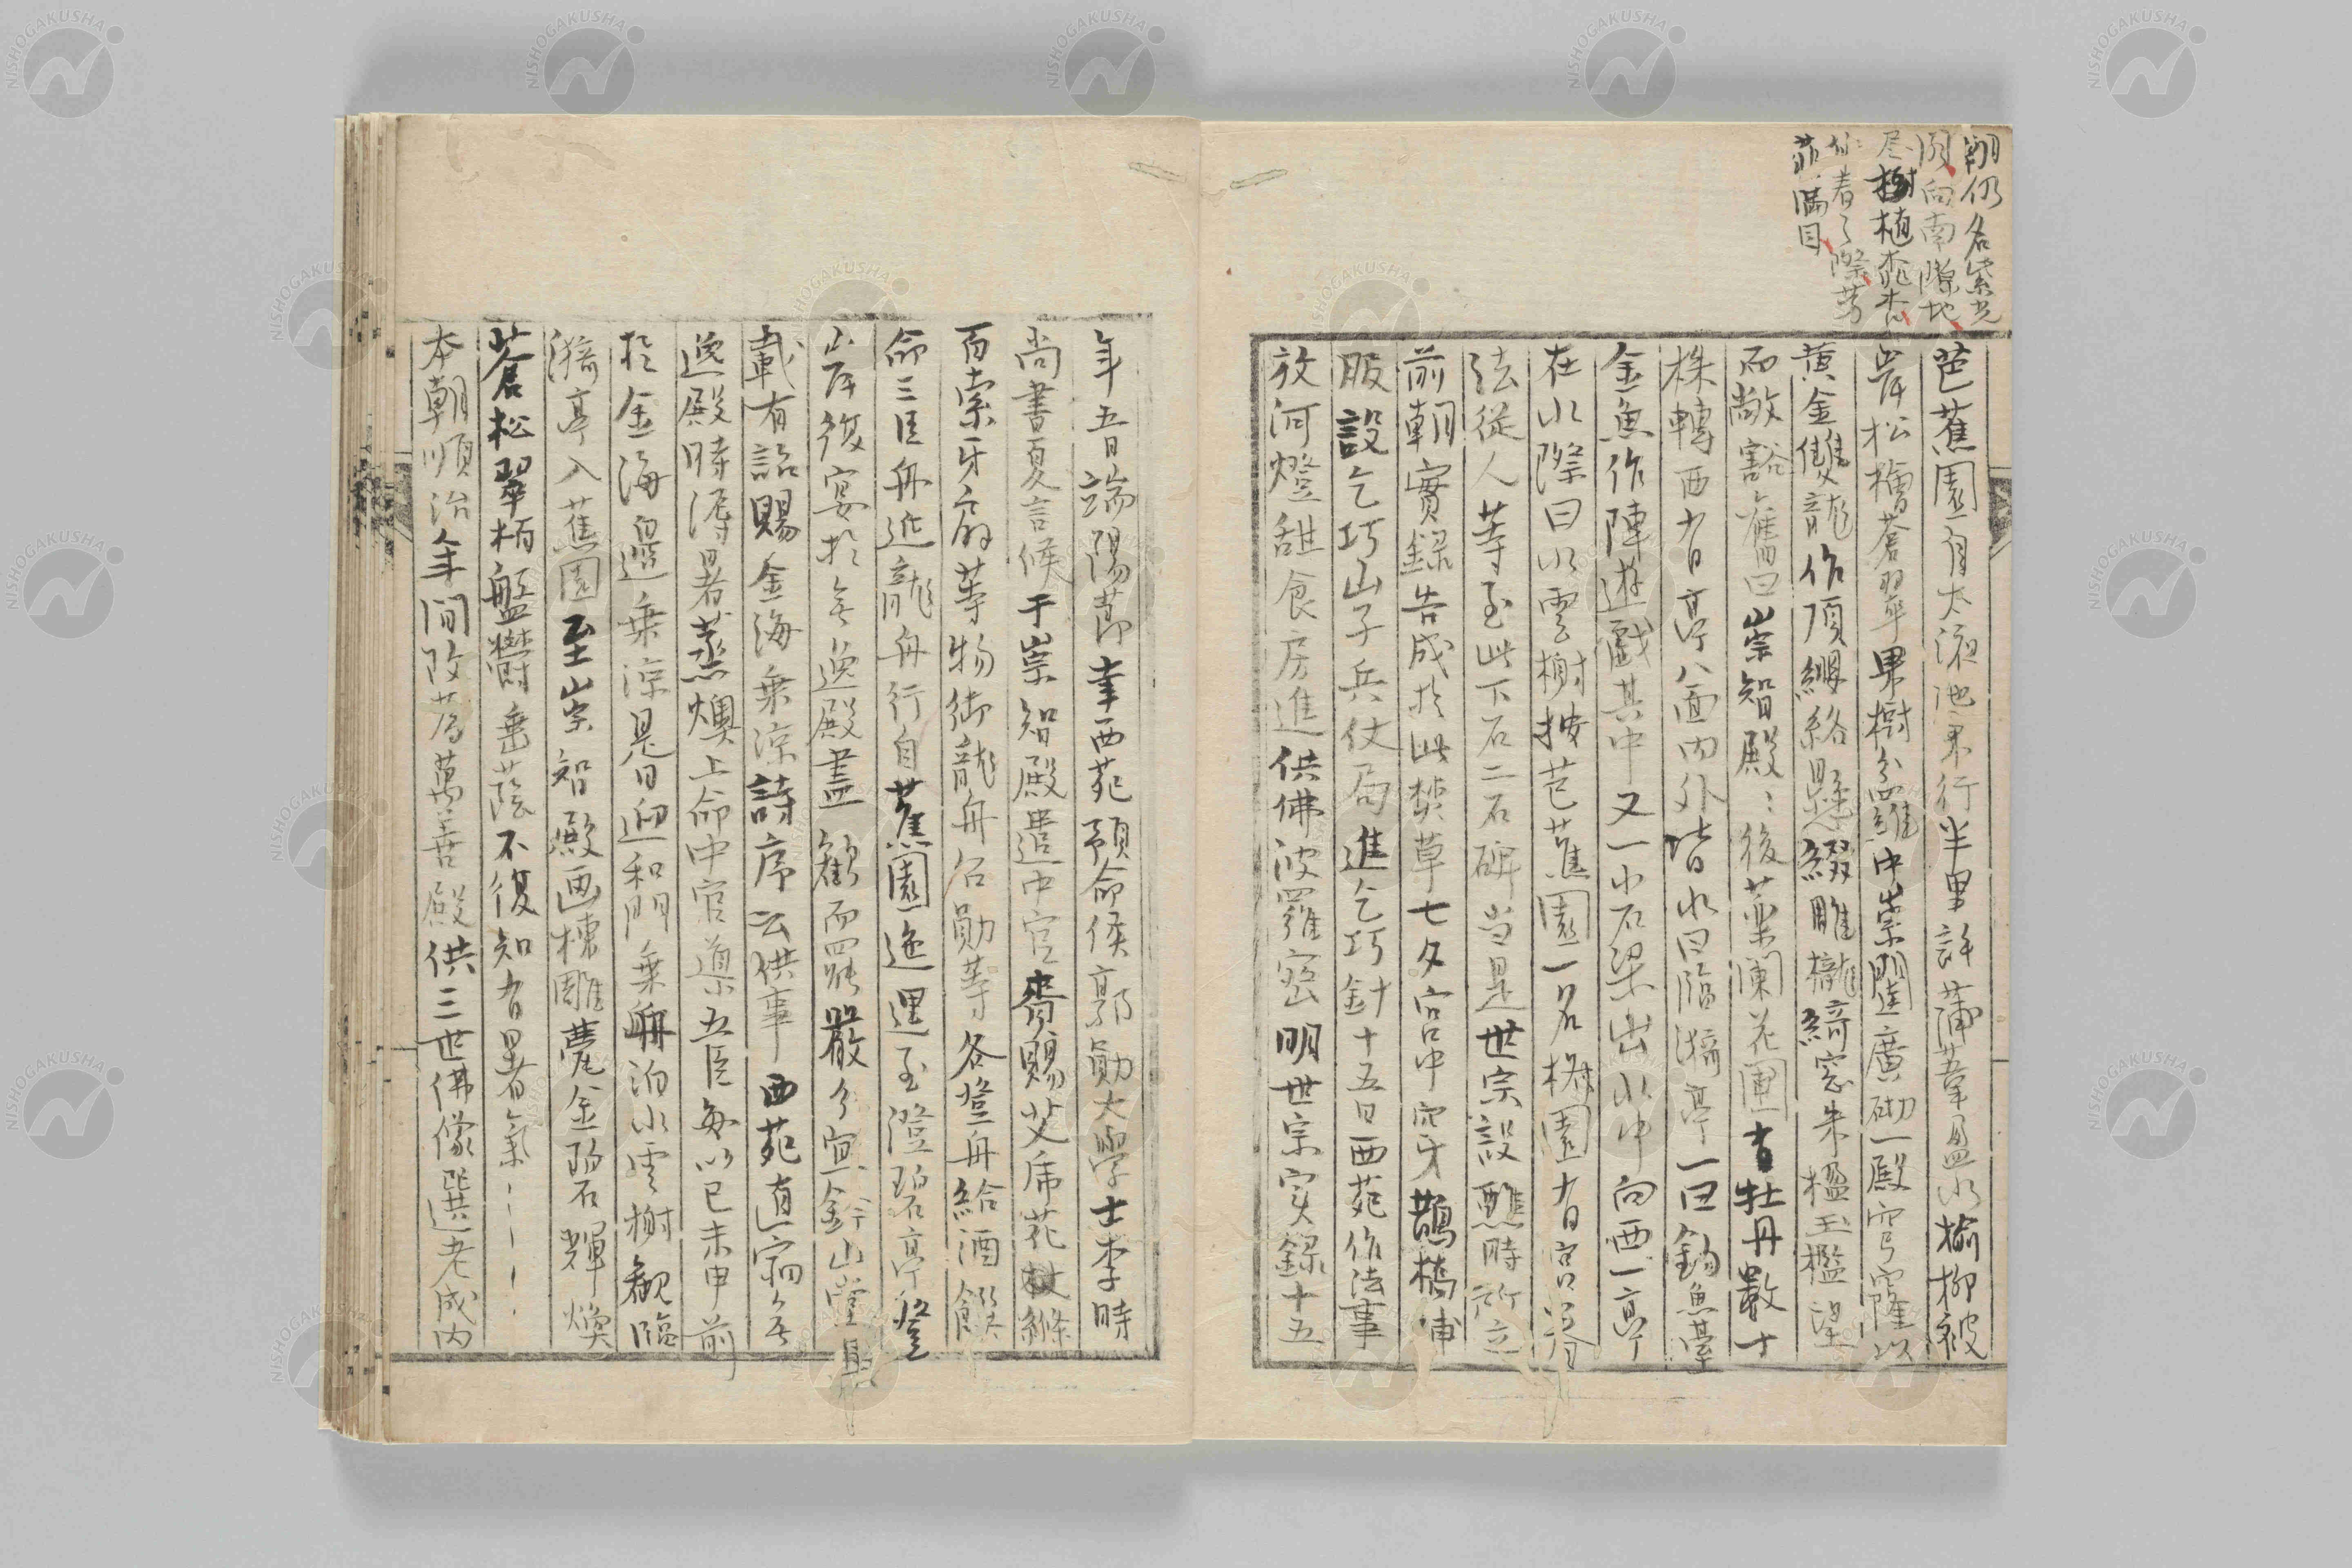 朝仍名紫光
閣向南隙地
尽樹植桃杏
春之際芳
菲滿目
芭蕉園自太液池東行半里許蒲葦盈水榆柳被
岸松檜蒼翠果樹分羅中崇闥廣砌一殿穹窿以
黃金雙龍作頂纓絡懸綴雕櫳綺窓朱楹玉檻望
而敞豁舊曰崇智殿〻後藥闌花圃有牡丹數十
株轉西有亭八面內外皆水曰臨漪亭一曰釣魚臺
金魚作陣遊戲其中又一小石梁出水中向西一亭
在水際曰水雲榭按芭蕉園一名椒園有宮
法從人等至此下石二石碑當是世宗設醮時所立
前朝實錄告成於此焚草七夕宮中穿鵲橋補
服設乞巧山子兵仗局進乞巧針十五日西苑作法事
放河燈甜食房進供佛波羅密明世宗實錄十五
年五日端陽節幸西苑預命侯郭勛大學士李時
尚書夏言候于崇智殿遣中官齎賜艾虎花絛
百索牙扇等物御龍舟召勛等各登舟給酒饌
命三臣舟近龍舟行自蕉園迤邐至澄碧亭登
岸復宴於無逸殿盡歡而罷嚴分宜鈐山堂集
載有詔賜金海乘涼詩序云供事西苑直宿無
逸殿時溽暑蒸燠上命中官導五臣每以巳未申前
於金海邊乘涼是日迎和門乘舟泊水雲榭觀臨
漪亭入蕉園至崇智殿画棟雕甍金碧輝煥
蒼松翠柏盤欝垂蔭不復知有暑氣
本朝順治年間改爲萬善殿供三世佛像選老成內